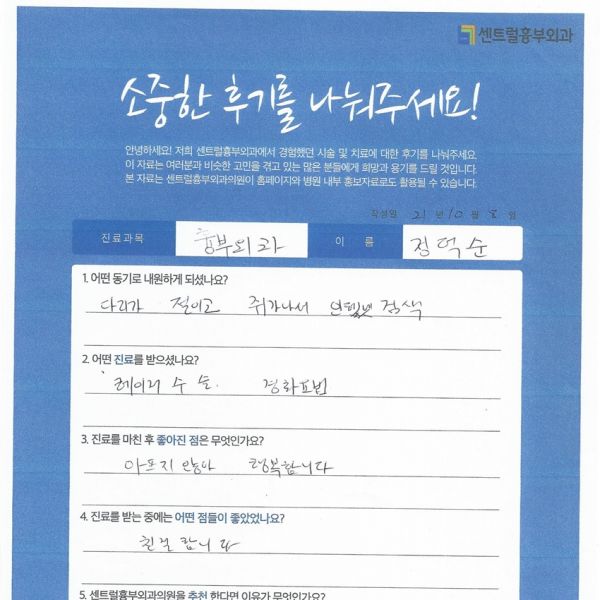 센트럴흉부외과
소중한 후기를 나눠주세요!
안녕하세요! 저희 센트럴흉부외과에서 경험했던 시술 및 치료에 대한 후기를 나눠주세요.
이 자료는 여러분과 비슷한 고민을 겪고 있는 많은 분들에게 희망과 용기를 드릴 것입니다.
본 자료는 센트럴흉부외과의원이 홈페이지와 병원 내부 홍보자료로도 활용될 수 있습니다.
작성일 21 년 10 월 8 일
진료과목 흉부외과 이 름 정덕순
1. 어떤 동기로 내원하게 되셨나요?
다리가 절이고 쥐가나서 인텔넷 검색
2. 어떤 진료를 받으셨나요?
레이저 수술. 경화요법
3. 진료를 마친 후 좋아진 점은 무엇인가요?
아프지 않아 행복합니다
4. 진료를 받는 중에는 어떤 점들이 좋았었나요?
친절합니다
5. 센트럴흉부외과의원을 추천 한다면 이유가 무엇인가요?